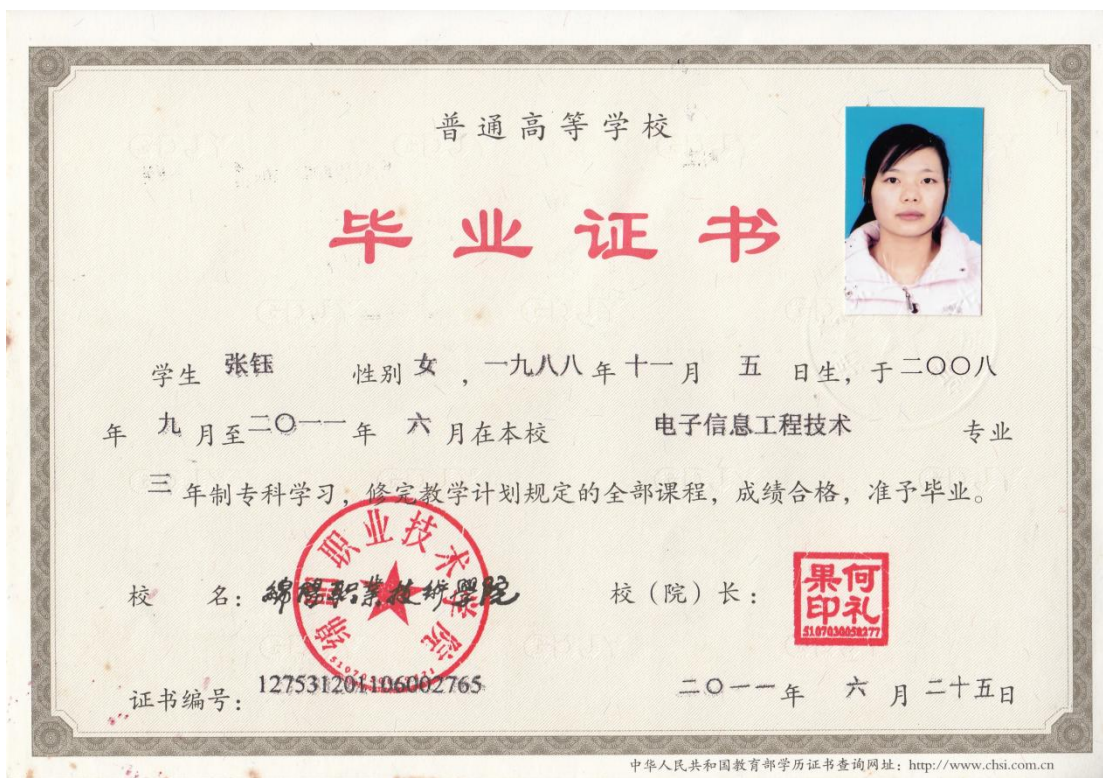 普通高等学校
毕业证书
学生 张钰 性别 女 ，一九八八 年 十一 月 五 日生，于 二〇〇八
年 九 月至 二〇一一 年 六 月在本校 电子信息工程技术 专业
三 年制专科学习，修完教学计划规定的全部课程，成绩合格，准予毕业。
绵阳职业技术学院
校 名：綿陽职業技術學院 校（院）长：
何礼果印
5107030058277
证书编号：127531201106002765 二〇一一 年 六 月 二十五日
中华人民共和国教育部学历证书查询网址：http://www.chsi.com.cn